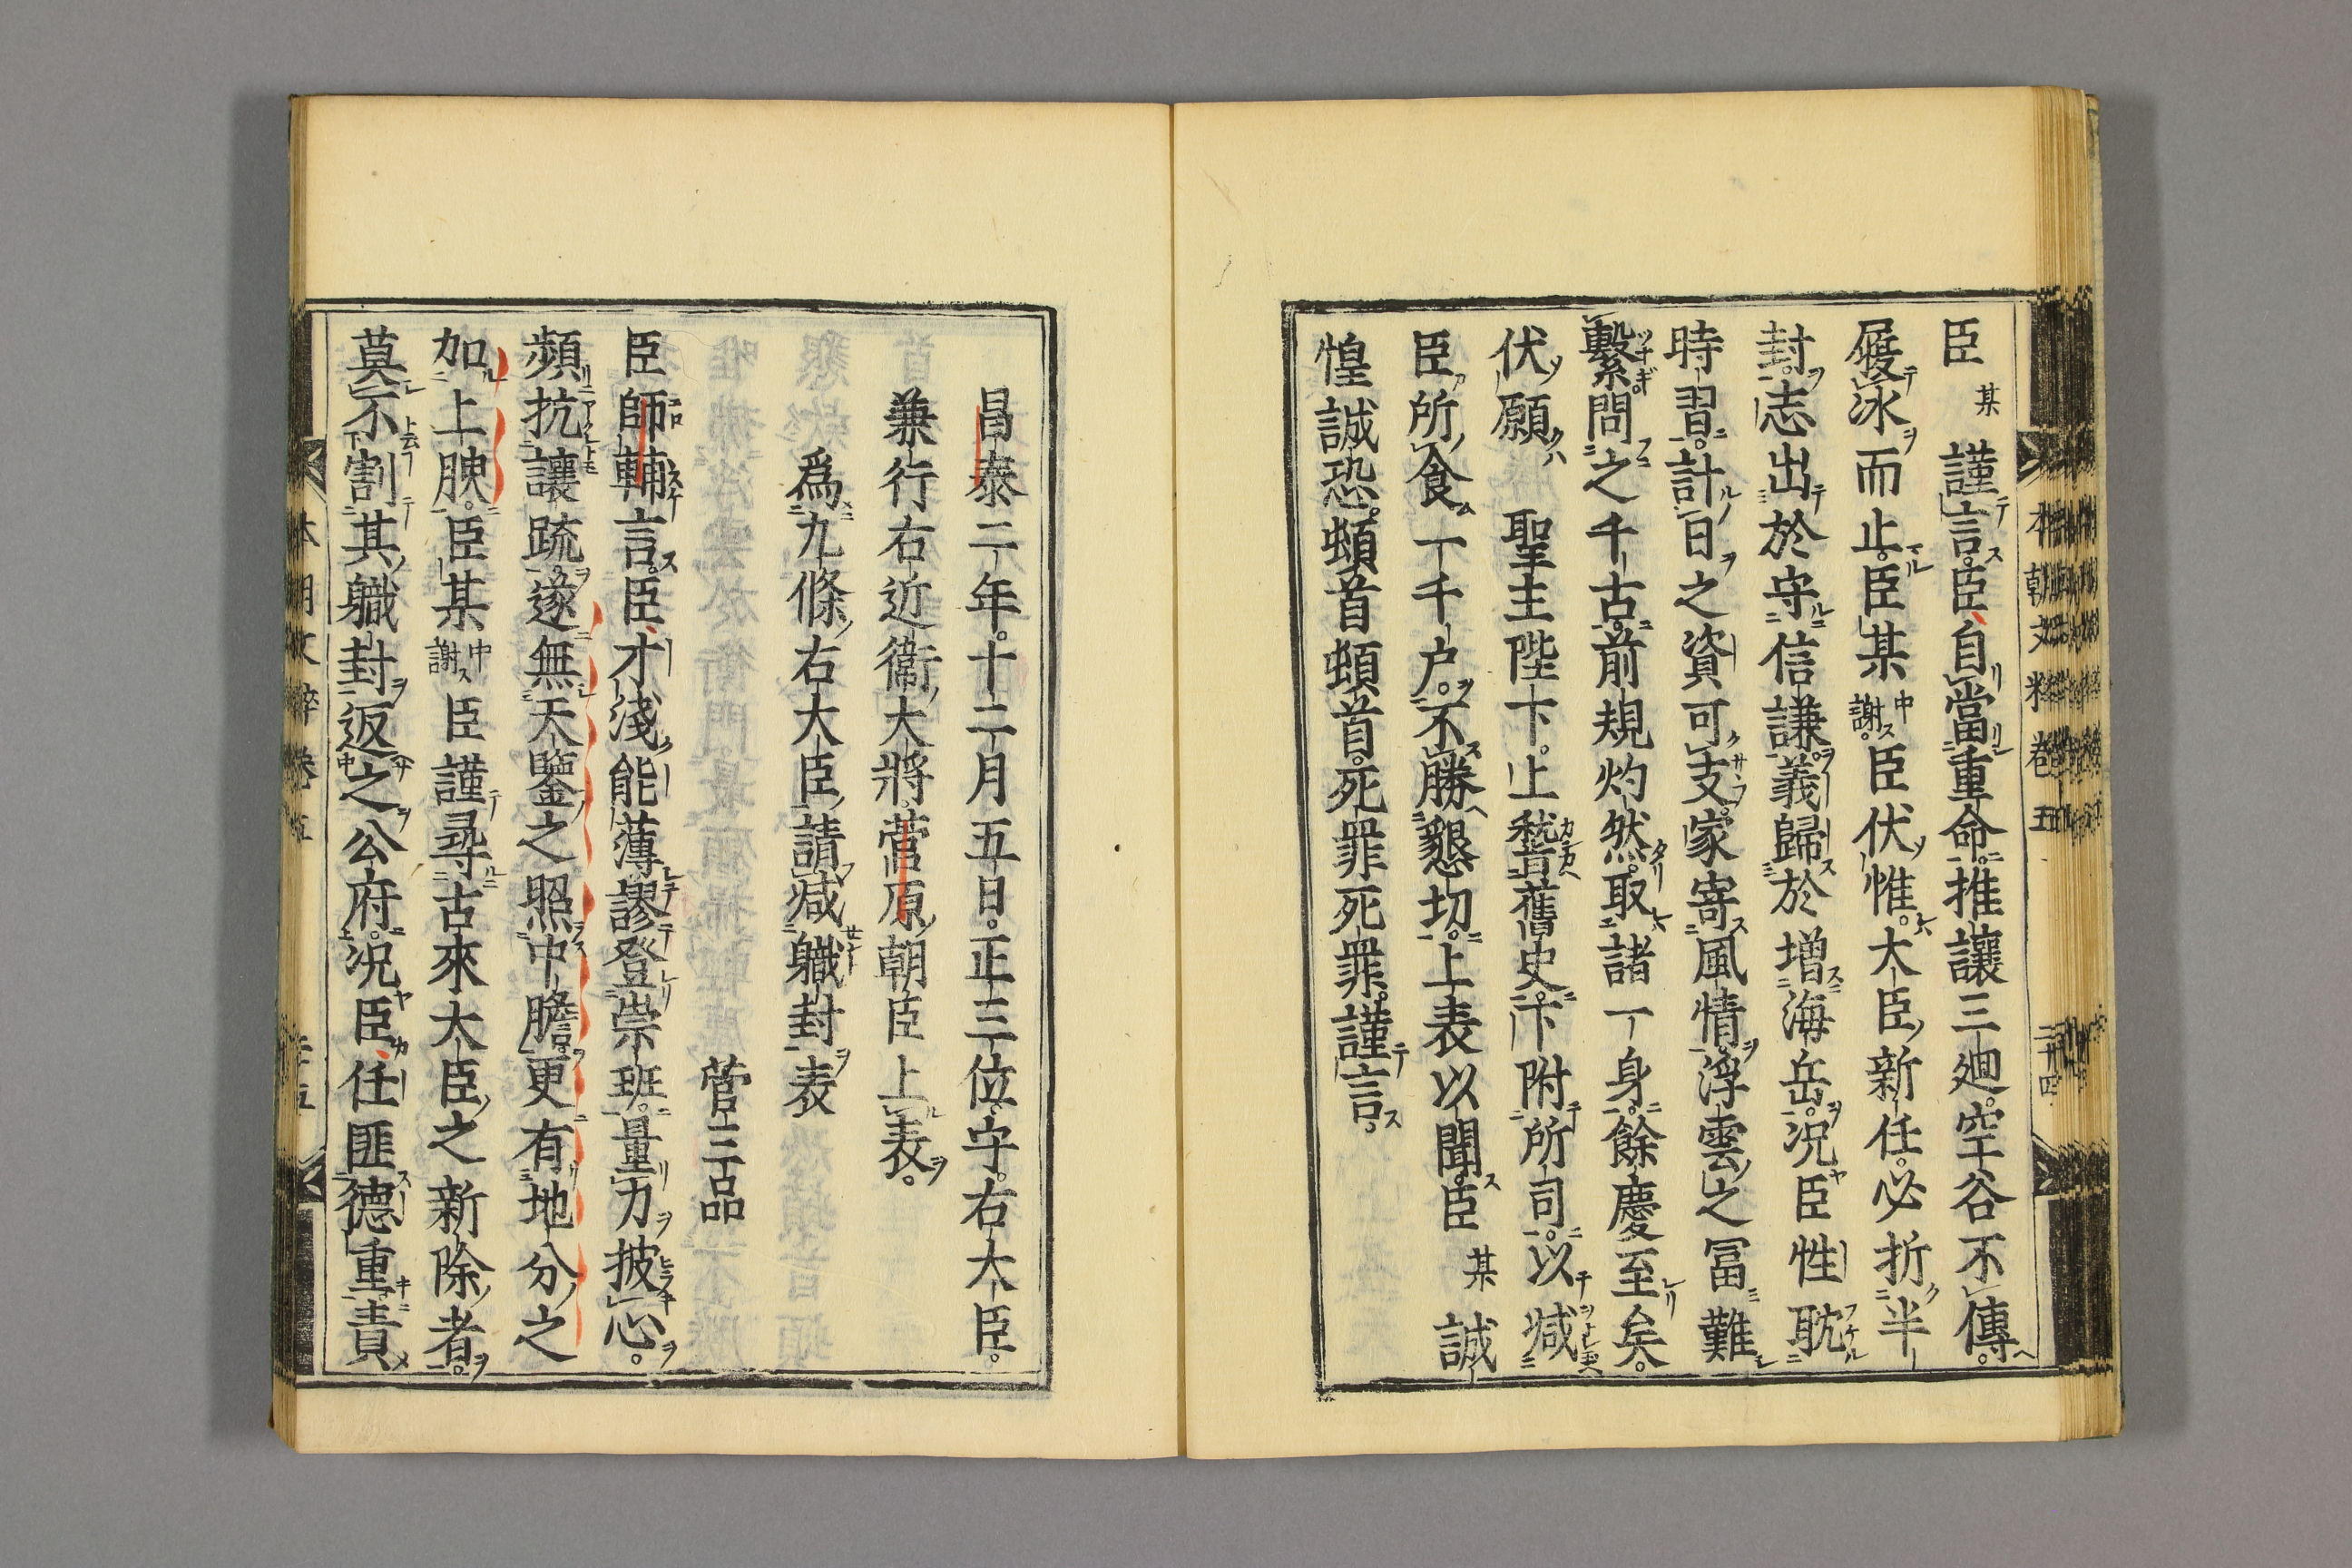 臣某謹言。臣自當重命。推讓三廻。空谷不傳。
履氷而止。臣某中謝。臣伏惟。大臣新任。必折半
封。志出於守信。謙義歸於增海岳。況臣性耽
時習。計日之資可支。家寄風情。浮雲之冨難
繫。問之千古。前規灼然。取諸一身。餘慶至矣。
伏願聖主陛下。上稽舊史。下附所司。以减
臣所食一千戸。不勝懇切。上表以聞。臣某誠
惶誠恐。頓首頓首。死罪死罪。謹言。
昌泰二年。十二月五日。正三位守。右大臣。
兼行右近衞大將菅原朝臣上表。
爲九條右大臣請减職封表
菅三品
臣師輔言。臣才淺能薄。謬登崇班。量力披心。
頻抗讓疏。遂無天鑒之照中膽。更有地分之
加上腴。臣某中謝臣謹尋古來大臣之新除者。
莫不割其職封返之公府。況臣任匪德重。責
本朝文粹卷五
二十四